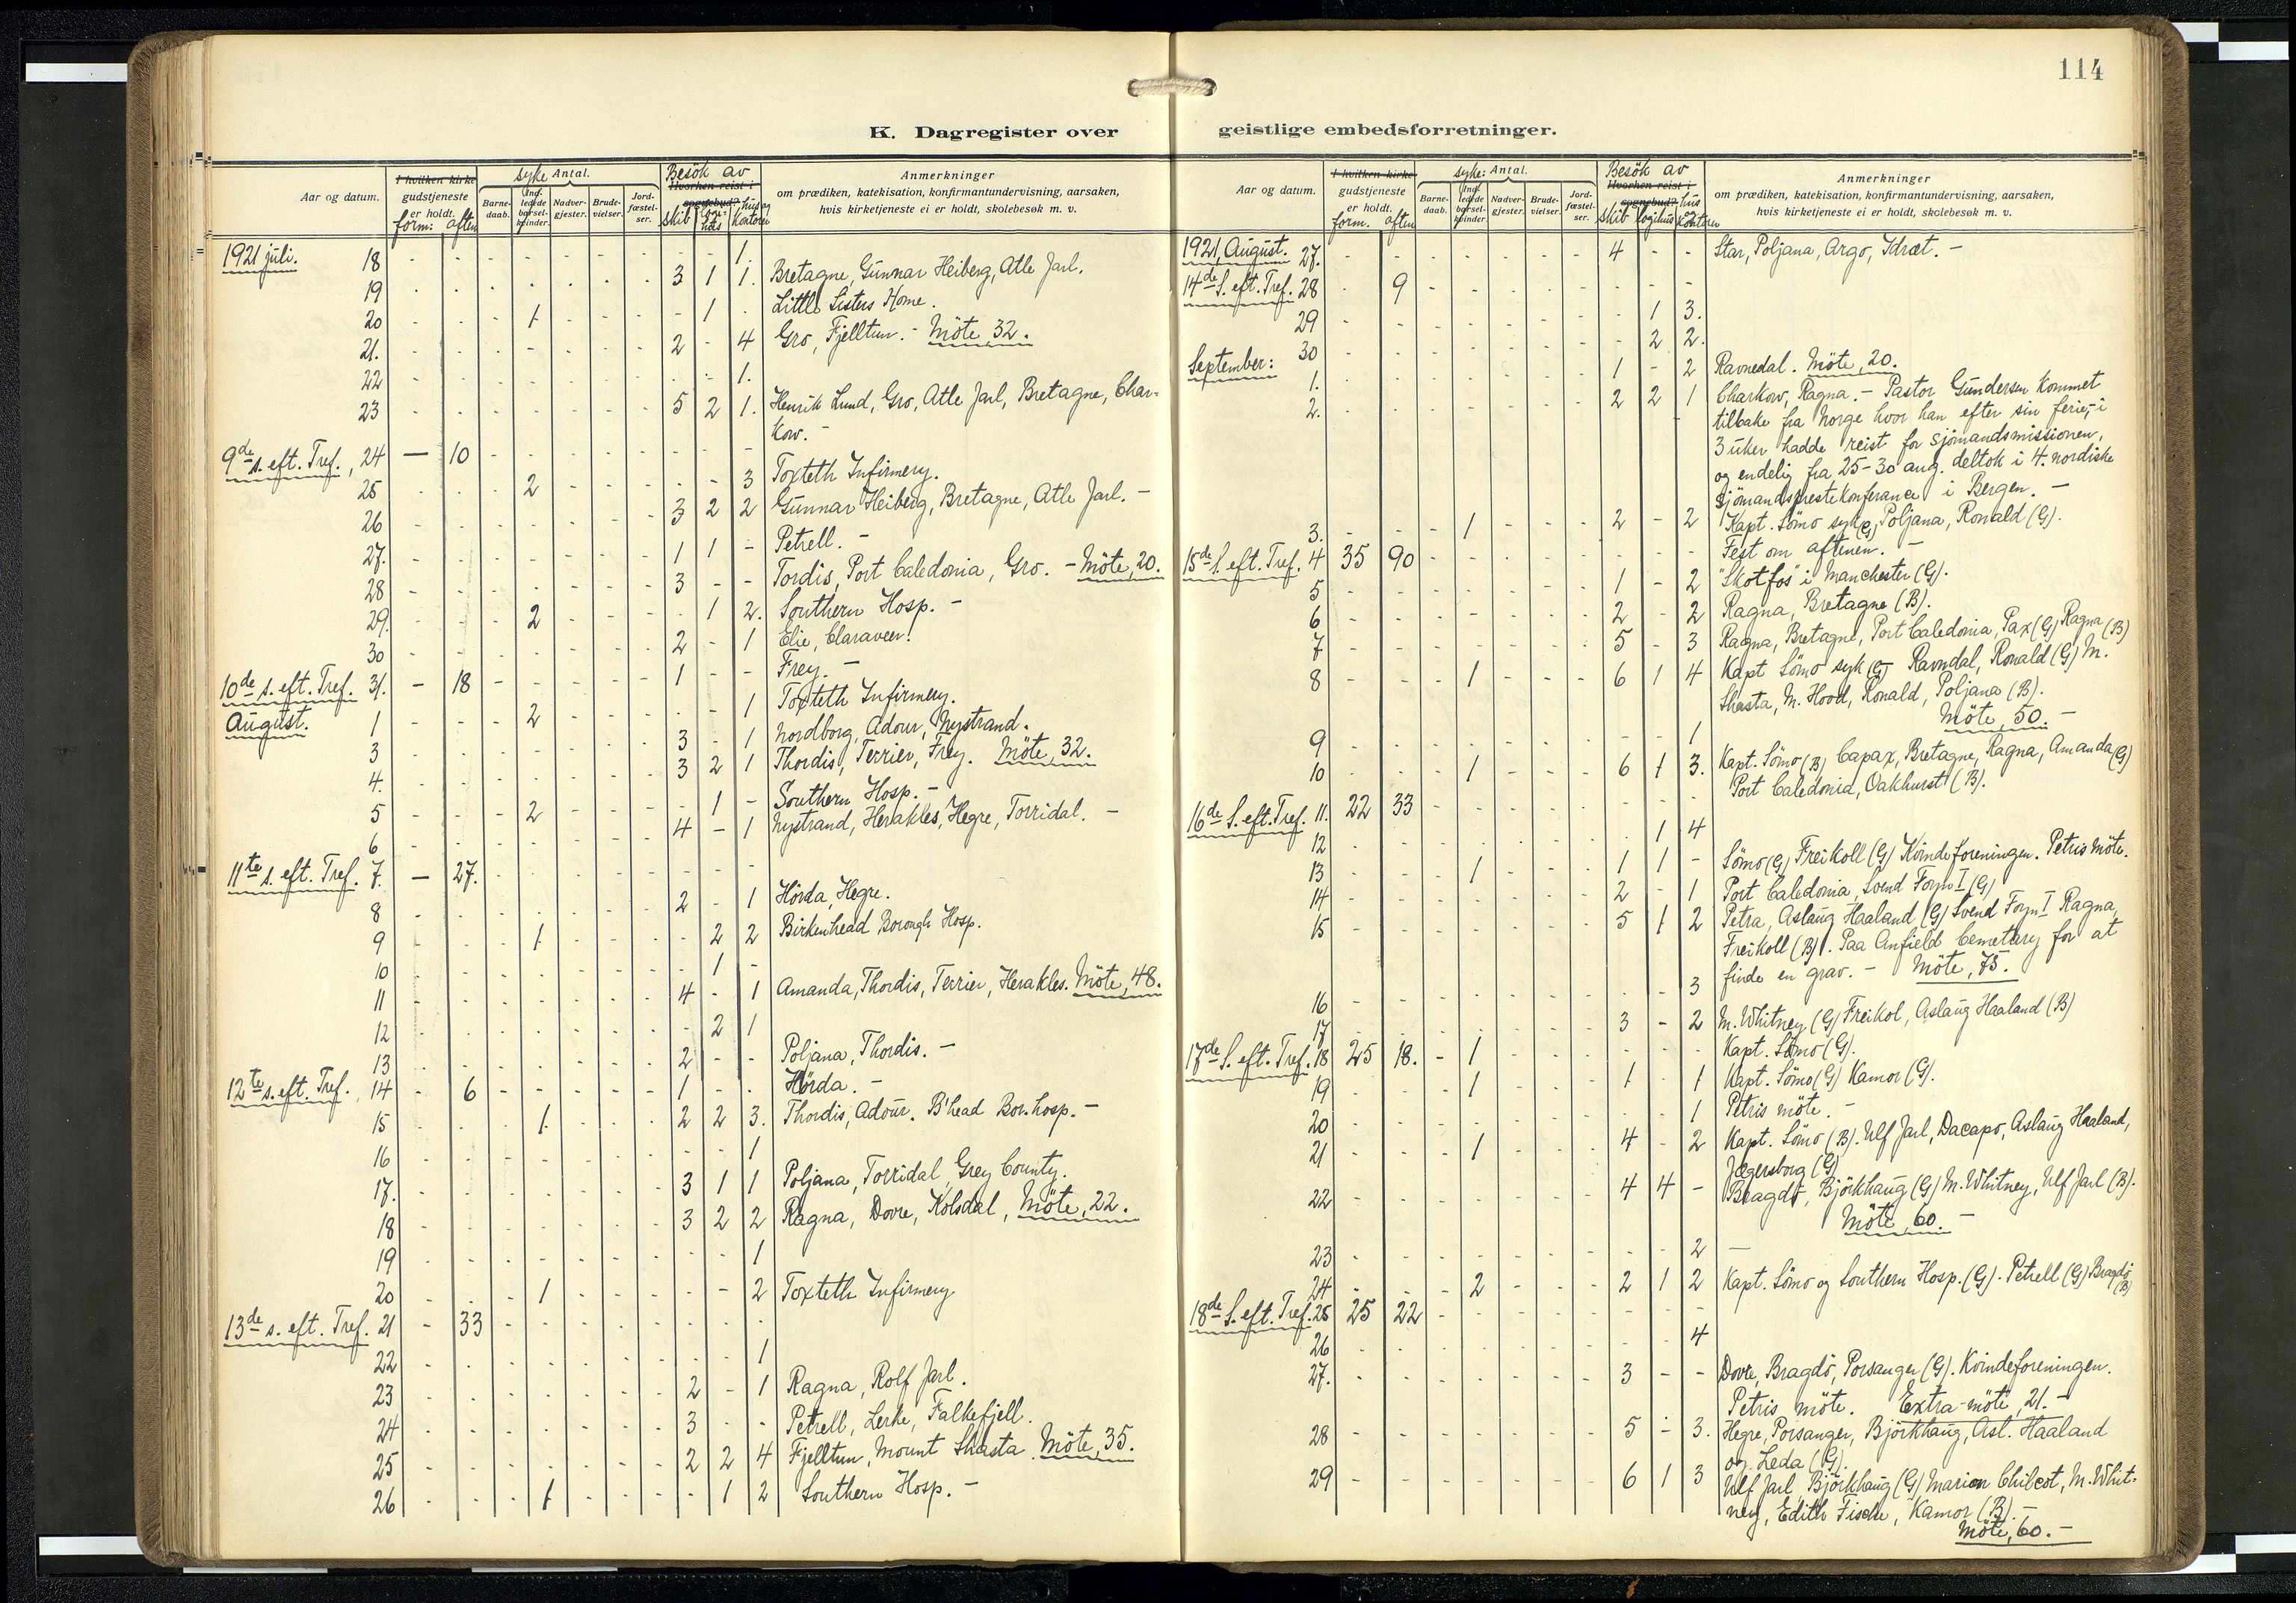 114
K. Dagregister over geistlige embedsforretninger.
Aar og datum. I hvilken kirke gudstjeneste er holdt. form: aften syke Antal. Barnedaab. Indledede barselkvinder. Nadvergjester. Brudevielser. Jordfæstelser. Besök av Hvorhen reist i sognebud? skib hus og kontoret Anmerkninger om prædiken, katekisation, konfirmantundervisning, aarsaken, hvis kirketjeneste ei er holdt, skolebesøk m. v.
1921 juli. 18 - - - - - - - - - 1.
19 - - - - - - - 3 1 1. Bretagne, Gunnar Heiberg, Atle Jarl.
20 - - - 1 - - - - 1 - Little Sisters Home.
21. - - - - - - - 2 - 4 Gro, Fjelltun. - Möte, 32.
22 - - - - - - - - - 1.
23 - - - - - - - 5 2 1. Henrik Lund, Gro, Atle Jarl, Bretagne, Char-
kow. -
9de s. eft. Tref., 24 — 10 - - - - - - - -
25 - - - 2 - - - - - 3 Toxteth Infirmery.
26 - - - - - - - 3 2 2 Gunnar Heiberg, Bretagne, Atle Jarl. -
27. - - - - - - - 1 1 - Petrell. -
28 - - - - - - - 3 - - Tordis, Port Caledonia, Gro. - Möte, 20.
29. - - - 2 - - - - 1 2. Southern Hosp. -
30 - - - - - - - 2 - 1 Elie, Claraveer.
10de s. eft. Tref. 31. - 18 - - - - - 1 - - Frey. -
August. 1 - - - 2 - - - - - 1 Toxteth Infirmery.
3 - - - - - - - 3 - 1 Nordborg, Adour, Nystrand.
4. - - - - - - - 3 2 1 Thordis, Terrier, Frey. Möte, 32.
5 - - - 2 - - - - 1 - Southern Hosp. -
6 - - - - - - - 4 - 1 Nystrand, Herakles, Hegre, Torridal. -
11te s. eft. Tref. 7. — 27. - - - - - - - -
8 - - - - - - - 2 - 1 Hörda, Hegre.
9 - - - 1 - - - - 2 2 Birkenhead Borough Hosp.
10 - - - - - - - - 1 -
11 - - - - - - - 4 - 1 Amanda, Thordis, Terrier, Herakles. Möte, 48.
12 - - - - - - - - 2 1
13 - - - - - - - 2 - - Poljana, Thordis. -
12te s. eft. Tref., 14 - 6 - - - - - 1 - - Hörda. -
15 - - - 1. - - - 2 2 3. Thordis, Adour. B'head Bor. hosp. -
16 - - - - - - - - - 1
17. - - - - - - - 3 1 1 Poljana, Torridal, Grey County.
18 - - - - - - - 3 2 2 Ragna, Dovre, Kolsdal, Möte, 22.
19 - - - - - - - - - 1
20 - - - 1 - - - - - 2 Toxteth Infirmery
13de s. eft. Tref. 21 - 33 - - - - - - - -
22 - - - - - - - - - 1
23 - - - - - - - 2 - 1 Ragna, Rolf Jarl.
24 - - - - - - - 3 - - Petrell, Lerke, Falkefjell.
25 - - - - - - - 2 2 4 Fjelltun, Mount Shasta. Möte, 35.
26 - - - 1 - - - - 1 2 Southern Hosp. -
Aar og datum. I hvilken kirke gudstjeneste er holdt. form. aften syke: Antal. Barnedaab. Indledede barselkvinder. Nadvergjester. Brudevielser. Jordfæstelser. Besök av Hvorhen reist i sognebud? skib logihus hus og kontoret Anmerkninger om prædiken, katekisation, konfirmantundervisning, aarsaken, hvis kirketjeneste ei er holdt, skolebesøk m. v.
1921, August. 27. - - - - - - - 4 - - Star, Poljana, Argo, Idræt. -
14de S. eft. Tref. 28 - 9 - - - - - - - -
29 - - - - - - - - 1 3.
30 - - - - - - - - 2 2.
September: 1. - - - - - - - 1 - 2 Ravnedal. Möte, 20.
2. - - - - - - - 2 2 1 Charkow, Ragna. - Pastor Gundersen kommet
tilbake fra Norge hvor han efter sin ferie, i
3 uker hadde reist for sjömandsmissionen,
og endelig fra 25-30 aug. deltok i 4. nordiske
sjömandsprestekonferance i Bergen. -
3. - - - 1 - - - 2 - 2 Kapt. Sömo syk (G), Poljana, Ronald (G).
15de S. eft. Tref. 4 35 90 - - - - - - - - Fest om aftenen. -
5 - - - - - - - 1 - 2 "Skotfos" i Manchester (G).
6 - - - - - - - 2 - 2 Ragna, Bretagne (B).
7 - - - - - - - 5 - 3 Ragna, Bretagne, Port Caledonia, Pax (G) Ragna (B)
8 - - - 1 - - - 6 1 4 Kapt Sömo syk (G) Ravndal, Ronald (G) M.
Shasta, M. Hood, Ronald, Poljana (B).
Möte, 50. -
9 - - - - - - - - - 1
10 - - - 1 - - - 6 1 3. Kapt. Sömo (B) Capax, Bretagne, Ragna, Amanda (G)
Port Caledonia, Oakhurst (B).
16de S. eft. Tref. 11. 22 33 - - - - - - - -
12 - - - - - - - - 1 4
13 - - - 1 - - - 1 1 - Sömo (G) Freikoll (G) Kvindeforeningen. Petris möte.
14 - - - - - - - 2 - 1 Port Caledonia, Svend Foyn I (G)
15 - - - - - - - 5 1 2 Petra, Aslaug Haaland (G) Svend Foyn I Ragna,
Freikoll (B). Paa Anfield Cemetary for at
finde en grav. - Möte, 75.
16 - - - - - - - - - 3
17 - - - - - - - 3 - 2 M. Whitney (G) Freikol, Aslaug Haaland (B)
17de S. eft. Tref. 18 25 18. - 1 - - - - - - Kapt. Sömo (G).
19 - - - 1 - - - 1 - 1 Kapt. Sömo (G) Kamor (G).
20 - - - - - - - - - 1 Petris möte. -
21 - - - 1 - - - 4 - 2 Kapt. Sömo (B). Ulf Jarl, Dacapo, Aslaug Haaland,
Jægersborg (G)
22 - - - - - - - 4 4 - Bragdö, Björkhaug (G) M. Whitney, Ulf Jarl (B).
Möte, 60. -
23 - - - - - - - - - 2 —
24 - - - 2 - - - 2 1 2 Kapt. Sömo og Southern Hosp. (G). Petrell (G) Bragdö (B)
18de S. eft. Tref. 25 25 22 - - - - - - - -
26 - - - - - - - - - 4
27. - - - - - - - 3 - - Dovre, Bragdö, Porsanger (G). Kvindeforeningen.
Petris möte. Extra-möte, 21. -
28 - - - - - - - 5 - 3. Hegre, Porsanger, Björkhaug, Asl. Haaland
og Leda (G).
29 - - - - - - - 6 1 3 Ulf Jarl, Björkhaug (G) Marion Chilcot, M. Whit-
ney, Edith Fische, Kamor (B). -
Möte, 60. -